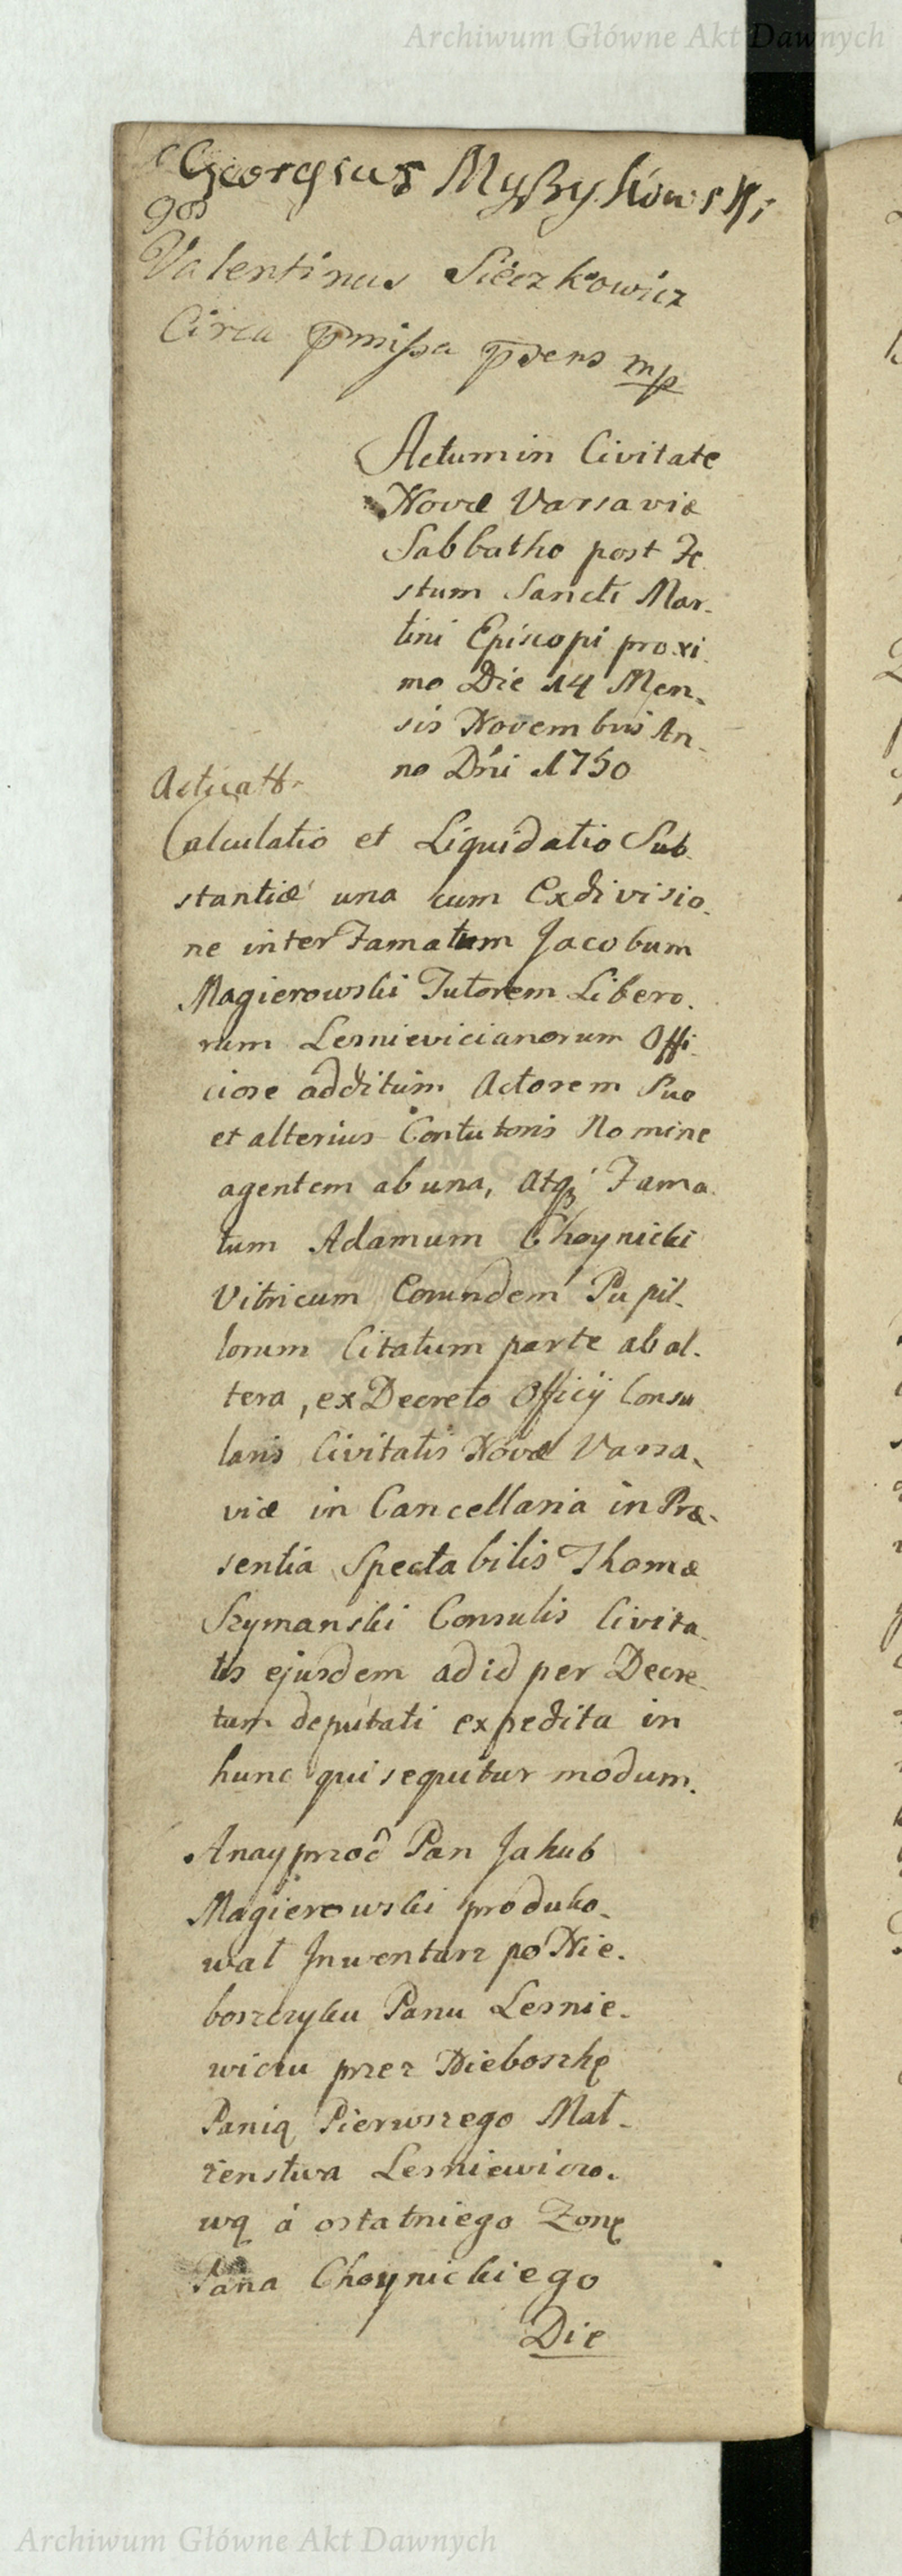 Archiwum Główne Akt Dawnych
Georgius Myßykowski
Valentinus Sieczkowicz
Circa pmissa pdens mp
Actum in Civitate
Novæ Varsaviæ
Sabbatho post Fe
stum Sancti Mar-
tini Episcopi proxi
mo Die 14 Men-
sis Novembris An-
no Dni 1750
Calculatio et Liquidatio Sub-
stantiæ una cum Exdivisio-
ne inter Famatum Jacobum
Magierowski Tutorem Libero-
rum Lesnievicianorum Offi
ciose additum Actorem Suo
et alterius Contutoris Nomine
agentem ab una, atq Fama-
tum Adamum Choynicki
Vitricum Eorundem Pupil-
lorum Citatum parte ab al-
tera, ex Decreto Officij Consu
laris Civitatis Novæ Varsa-
viæ in Cancellaria in Præ-
sentia Spectabilis Thomæ
Szymanski Consulis Civita-
tis ejusdem ad id per Decre-
tum deputati expedita in
hunc qui sequitur modum.
Anayprzod Pan Jakub
Magierowski produko-
wał Jnwentarz po Nie-
boszczyku Panu Lesnie-
wiczu przez Nieboszkę
Panią Pierwszego Mał-
żenstwa Lesniewiczo-
wą á ostatniego Zonę
Pana Choynickiego
Die
Archiwum Główne Akt Dawnych